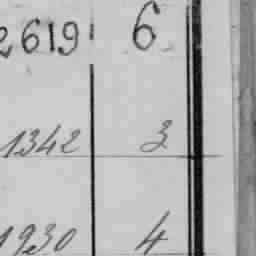 2619 6
1342 3
1930 4